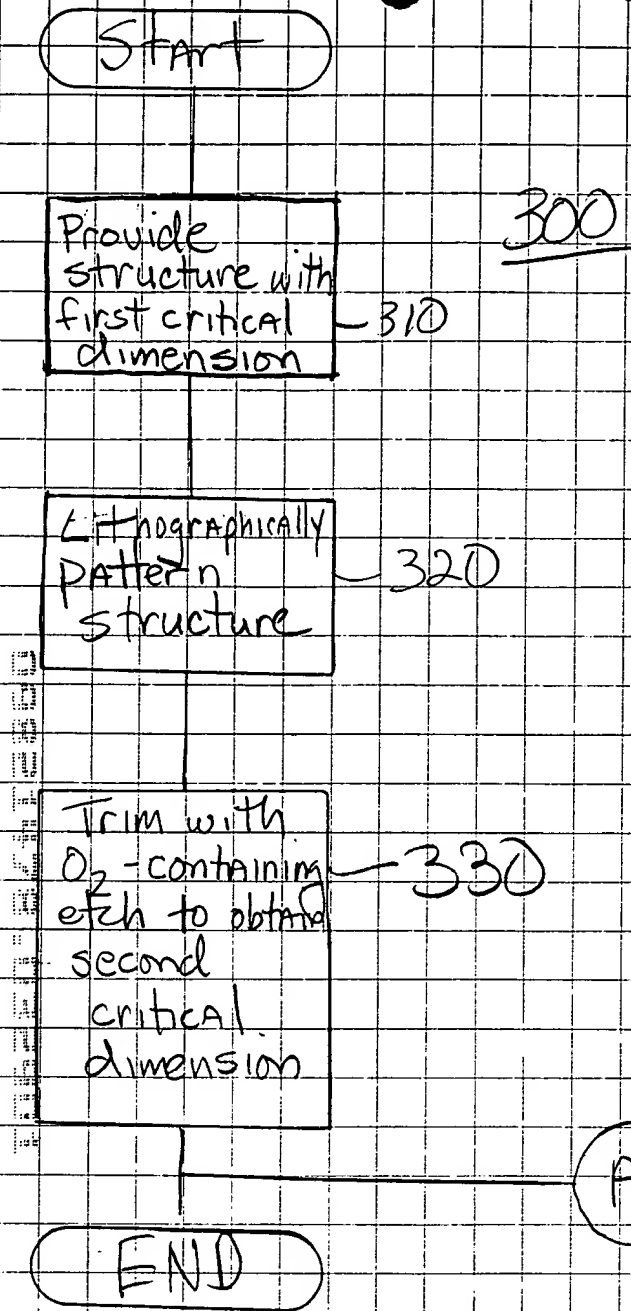 Start
300
Provide
structure with
first critical
dimension
310
Lithographically
pattern
structure
320
Trim with
O₂-containing
etch to obtain
second
critical
dimension
330
END